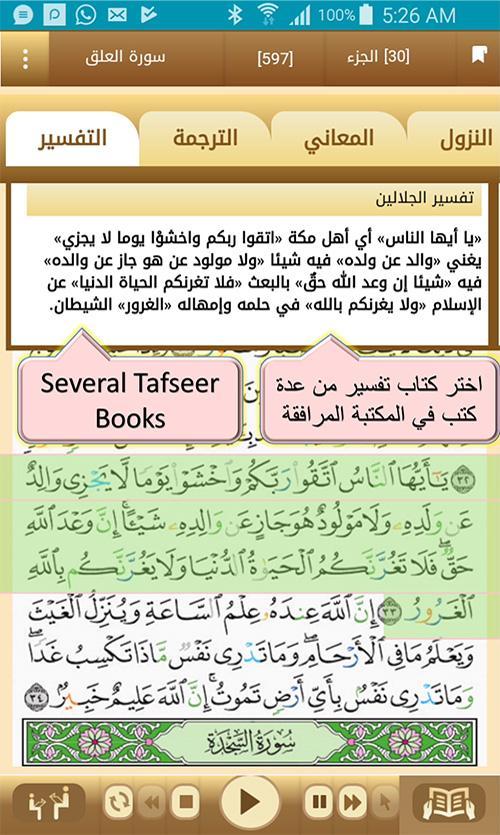 100% 5:26 AM
سورة العلق [597] الجزء [30]
التفسير الترجمة المعاني النزول
تفسير الجلالين
«يا أيها الناس» أي أهل مكة «اتقوا ربكم واخشوْا يوما لا يجزي»
يغني «والد عن ولده» فيه شيئا «ولا مولود عن هو جاز عن والده»
فيه «شيئا إن وعد الله حقٌ» بالبعث «فلا تغرنكم الحياة الدنيا» عن
الإسلام «ولا يغرنكم بالله» في حلمه وإمهاله «الغرور» الشيطان.
Several Tafseer
Books
اختر كتاب تفسير من عدة
كتب في المكتبة المرافقة
٣٢ يَٰٓأَيُّهَا ٱلنَّاسُ ٱتَّقُوا۟ رَبَّكُمْ وَٱخْشَوْا۟ يَوْمًا لَّا يَجْزِى وَالِدٌ
عَن وَلَدِهِۦ وَلَا مَوْلُودٌ هُوَ جَازٍ عَن وَالِدِهِۦ شَيْـًٔا ۚ إِنَّ وَعْدَ ٱللَّهِ
حَقٌّ ۖ فَلَا تَغُرَّنَّكُمُ ٱلْحَيَوٰةُ ٱلدُّنْيَا وَلَا يَغُرَّنَّكُم بِٱللَّهِ
ٱلْغَرُورُ ٣٣ إِنَّ ٱللَّهَ عِندَهُۥ عِلْمُ ٱلسَّاعَةِ وَيُنَزِّلُ ٱلْغَيْثَ
وَيَعْلَمُ مَا فِى ٱلْأَرْحَامِ ۖ وَمَا تَدْرِى نَفْسٌ مَّاذَا تَكْسِبُ غَدًا ۖ
وَمَا تَدْرِى نَفْسٌۢ بِأَىِّ أَرْضٍ تَمُوتُ ۚ إِنَّ ٱللَّهَ عَلِيمٌ خَبِيرٌۢ ٣٤
سُورَةُ السَّجْدَةِ